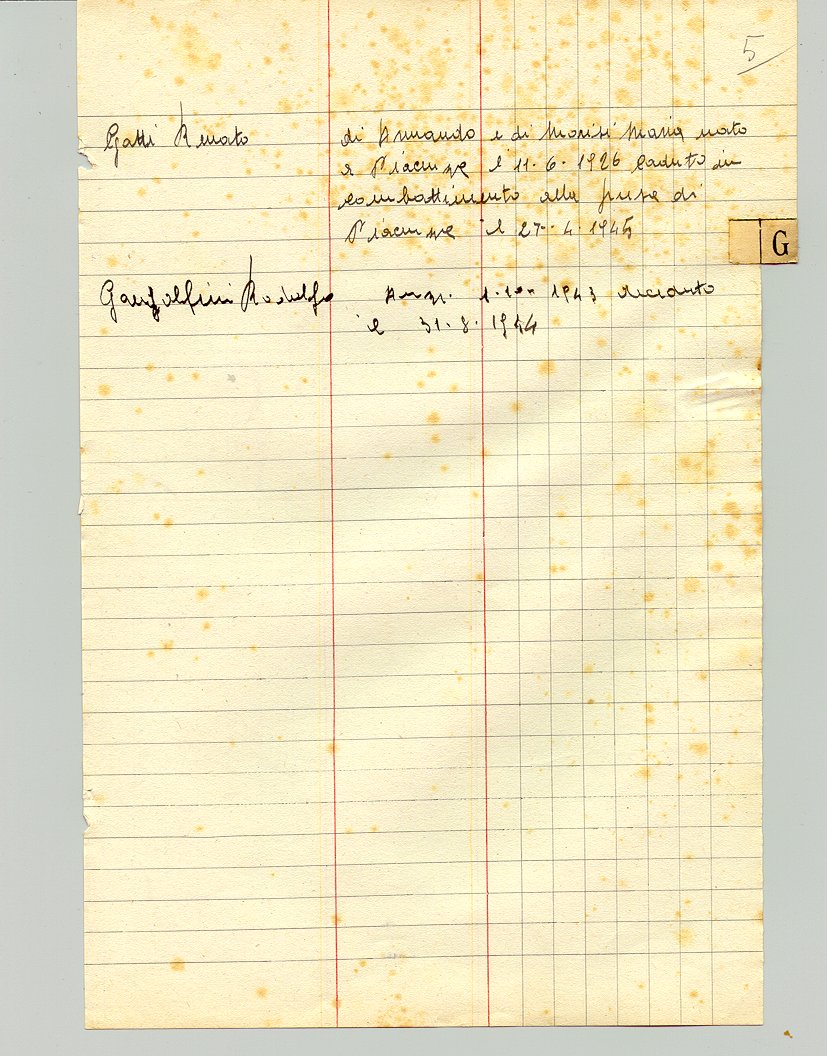 5
Gatti Renato di Armando e di Morisi Maria nato
a Piacenza il 11-6-1926 caduto in
combattimento alla presa di
Piacenza il 27-4-1945
G
Rodolfo 1943 deceduto
il 31-8-1944